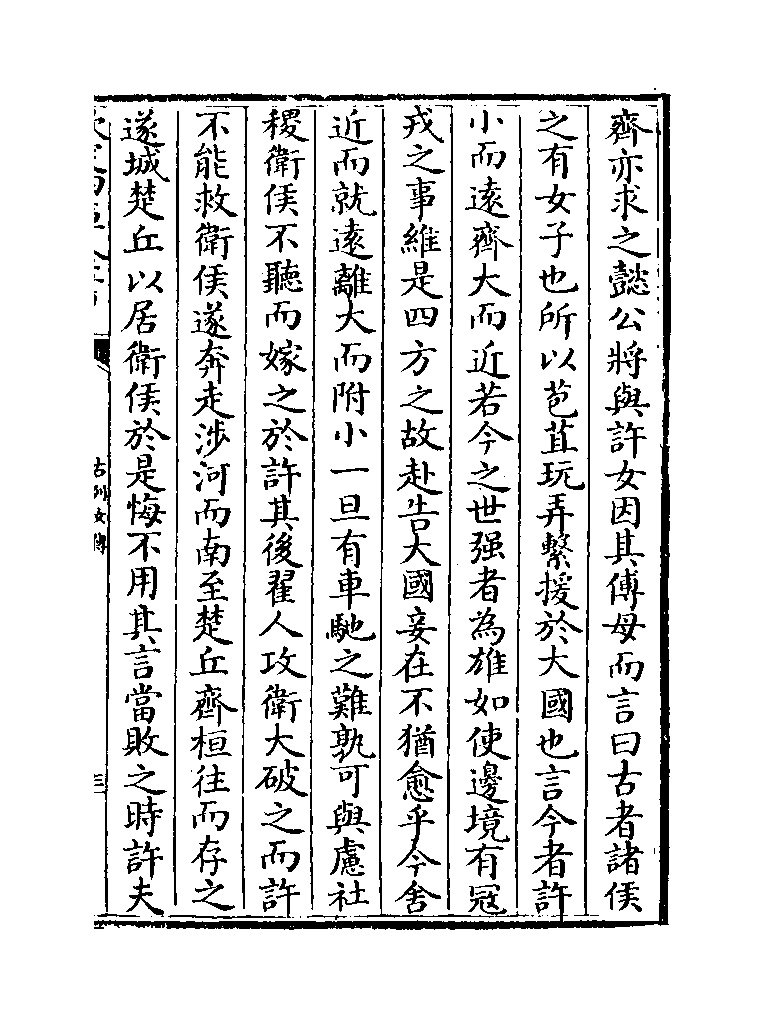 齊亦求之懿公將與許女因其傅母而言曰古者諸侯
之有女子也所以苞苴玩弄繫援於大國也言今者許
小而遠齊大而近若今之世强者為雄如使邊境有冦
戎之事維是四方之故赴告大國妾在不猶愈乎今舍
近而就遠離大而附小一旦有車馳之難孰可與慮社
稷衛侯不聽而嫁之於許其後翟人攻衛大破之而許
不能救衛侯遂奔走涉河而南至楚丘齊桓往而存之
遂城楚丘以居衛侯於是悔不用其言當敗之時許夫
古列女傳
三